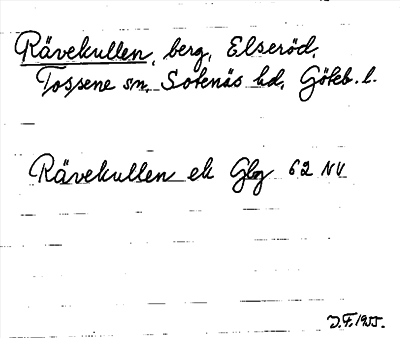 Rävekullen, berg, Elseröd,
Tossene sn, Sotenäs hd, Göteb. l.
Rävekullen ek Glg 62 NV
J.F. 1955.